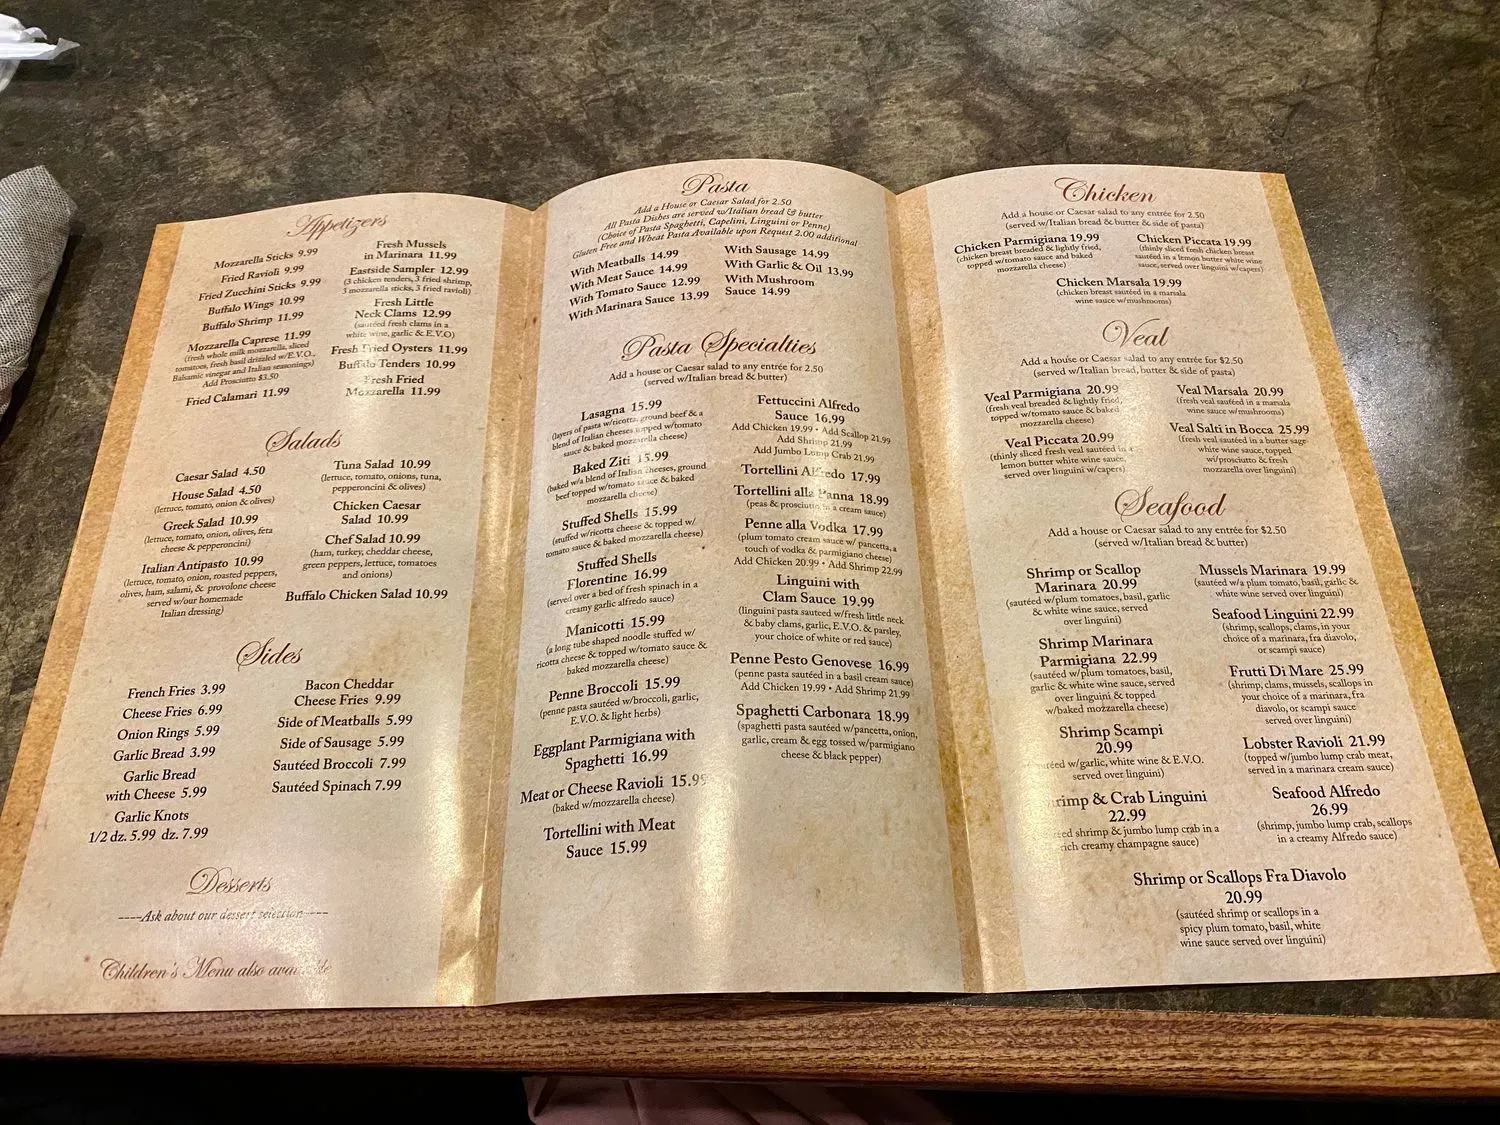 Appetizers
Mozzarella Sticks 9.99
Fried Ravioli 9.99
Fried Zucchini Sticks 9.99
Buffalo Wings 10.99
Buffalo Shrimp 11.99
Mozzarella Caprese 11.99
(fresh whole milk mozzarella, sliced
tomatoes, fresh basil drizzled w/E.V.O.,
Balsamic vinegar and Italian seasonings)
Add Prosciutto $3.50
Fried Calamari 11.99
Fresh Mussels
in Marinara 11.99
Eastside Sampler 12.99
(3 chicken tenders, 3 fried shrimp,
3 mozzarella sticks, 3 fried ravioli)
Fresh Little
Neck Clams 12.99
(sautéed fresh clams in a
white wine, garlic & E.V.O)
Fresh Fried Oysters 11.99
Buffalo Tenders 10.99
Fresh Fried
Mozzarella 11.99
Salads
Caesar Salad 4.50
House Salad 4.50
(lettuce, tomato, onion & olives)
Greek Salad 10.99
(lettuce, tomato, onion, olives, feta
cheese & pepperoncini)
Italian Antipasto 10.99
(lettuce, tomato, onion, roasted peppers,
olives, ham, salami, & provolone cheese
served w/our homemade
Italian dressing)
Tuna Salad 10.99
(lettuce, tomato, onions, tuna,
pepperoncini & olives)
Chicken Caesar
Salad 10.99
Chef Salad 10.99
(ham, turkey, cheddar cheese,
green peppers, lettuce, tomatoes
and onions)
Buffalo Chicken Salad 10.99
Sides
French Fries 3.99
Cheese Fries 6.99
Onion Rings 5.99
Garlic Bread 3.99
Garlic Bread
with Cheese 5.99
Garlic Knots
1/2 dz. 5.99 dz. 7.99
Bacon Cheddar
Cheese Fries 9.99
Side of Meatballs 5.99
Side of Sausage 5.99
Sautéed Broccoli 7.99
Sautéed Spinach 7.99
Desserts
----Ask about our dessert selection----
Children's Menu also available
Pasta
Add a House or Caesar Salad for 2.50
All Pasta Dishes are served w/Italian bread & butter
(Choice of Pasta Spaghetti, Capelini, Linguini or Penne)
Gluten Free and Wheat Pasta Available upon Request 2.00 additional
With Meatballs 14.99
With Meat Sauce 14.99
With Tomato Sauce 12.99
With Marinara Sauce 13.99
With Sausage 14.99
With Garlic & Oil 13.99
With Mushroom
Sauce 14.99
Pasta Specialties
Add a house or Caesar salad to any entrée for 2.50
(served w/Italian bread & butter)
Lasagna 15.99
(layers of pasta w/ricotta, ground beef & a
blend of Italian cheeses topped w/tomato
sauce & baked mozzarella cheese)
Baked Ziti 15.99
(baked w/a blend of Italian cheeses, ground
beef topped w/tomato sauce & baked
mozzarella cheese)
Stuffed Shells 15.99
(stuffed w/ricotta cheese & topped w/
tomato sauce & baked mozzarella cheese)
Stuffed Shells
Florentine 16.99
(served over a bed of fresh spinach in a
creamy garlic alfredo sauce)
Manicotti 15.99
(a long tube shaped noodle stuffed w/
ricotta cheese & topped w/tomato sauce &
baked mozzarella cheese)
Penne Broccoli 15.99
(penne pasta sautéed w/broccoli, garlic,
E.V.O. & light herbs)
Eggplant Parmigiana with
Spaghetti 16.99
Meat or Cheese Ravioli 15.99
(baked w/mozzarella cheese)
Tortellini with Meat
Sauce 15.99
Fettuccini Alfredo
Sauce 16.99
Add Chicken 19.99 • Add Scallop 21.99
Add Shrimp 21.99
Add Jumbo Lump Crab 21.99
Tortellini Alfredo 17.99
Tortellini alla Panna 18.99
(peas & prosciutto in a cream sauce)
Penne alla Vodka 17.99
(plum tomato cream sauce w/ pancetta, a
touch of vodka & parmigiano cheese)
Add Chicken 20.99 • Add Shrimp 22.99
Linguini with
Clam Sauce 19.99
(linguini pasta sauteed w/fresh little neck
& baby clams, garlic, E.V.O. & parsley,
your choice of white or red sauce)
Penne Pesto Genovese 16.99
(penne pasta sautéed in a basil cream sauce)
Add Chicken 19.99 • Add Shrimp 21.99
Spaghetti Carbonara 18.99
(spaghetti pasta sautéed w/pancetta, onion,
garlic, cream & egg tossed w/parmigiano
cheese & black pepper)
Chicken
Add a house or Caesar salad to any entrée for 2.50
(served w/Italian bread & butter & side of pasta)
Chicken Parmigiana 19.99
(chicken breast breaded & lightly fried,
topped w/tomato sauce and baked
mozzarella cheese)
Chicken Piccata 19.99
(thinly sliced fresh chicken breast
sautéed in a lemon butter white wine
sauce, served over linguini w/capers)
Chicken Marsala 19.99
(chicken breast sautéed in a marsala
wine sauce w/mushrooms)
Veal
Add a house or Caesar salad to any entrée for $2.50
(served w/Italian bread, butter & side of pasta)
Veal Parmigiana 20.99
(fresh veal breaded & lightly fried,
topped w/tomato sauce & baked
mozzarella cheese)
Veal Piccata 20.99
(thinly sliced fresh veal sautéed in a
lemon butter white wine sauce,
served over linguini w/capers)
Veal Marsala 20.99
(fresh veal sautéed in a marsala
wine sauce w/mushrooms)
Veal Salti in Bocca 25.99
(fresh veal sautéed in a butter sage
white wine sauce, topped
w/prosciutto & fresh
mozzarella over linguini)
Seafood
Add a house or Caesar salad to any entrée for $2.50
(served w/Italian bread & butter)
Shrimp or Scallop
Marinara 20.99
(sautéed w/plum tomatoes, basil, garlic
& white wine sauce, served
over linguini)
Shrimp Marinara
Parmigiana 22.99
(sautéed w/plum tomatoes, basil,
garlic & white wine sauce, served
over linguini & topped
w/baked mozzarella cheese)
Shrimp Scampi
20.99
w/garlic, white wine & E.V.O.
served over linguini)
Shrimp & Crab Linguini
22.99
shrimp & jumbo lump crab in a
rich creamy champagne sauce)
Mussels Marinara 19.99
(sautéed w/a plum tomato, basil, garlic &
white wine served over linguini)
Seafood Linguini 22.99
(shrimp, scallops, clams, in your
choice of a marinara, fra diavolo,
or scampi sauce)
Frutti Di Mare 25.99
(shrimp, clams, mussels, scallops in
your choice of a marinara, fra
diavolo, or scampi sauce
served over linguini)
Lobster Ravioli 21.99
(topped w/jumbo lump crab meat,
served in a marinara cream sauce)
Seafood Alfredo
26.99
(shrimp, jumbo lump crab, scallops
in a creamy Alfredo sauce)
Shrimp or Scallops Fra Diavolo
20.99
(sautéed shrimp or scallops in a
spicy plum tomato, basil, white
wine sauce served over linguini)